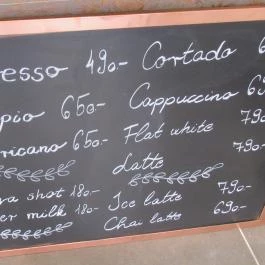 resso 490- Cortado 6
pio 650- Cappuccino 69
ricano 650- Flat white 790
Latte 790-
ra shot 180- Ice latte 790-
er milk 180- Chai latte 690-